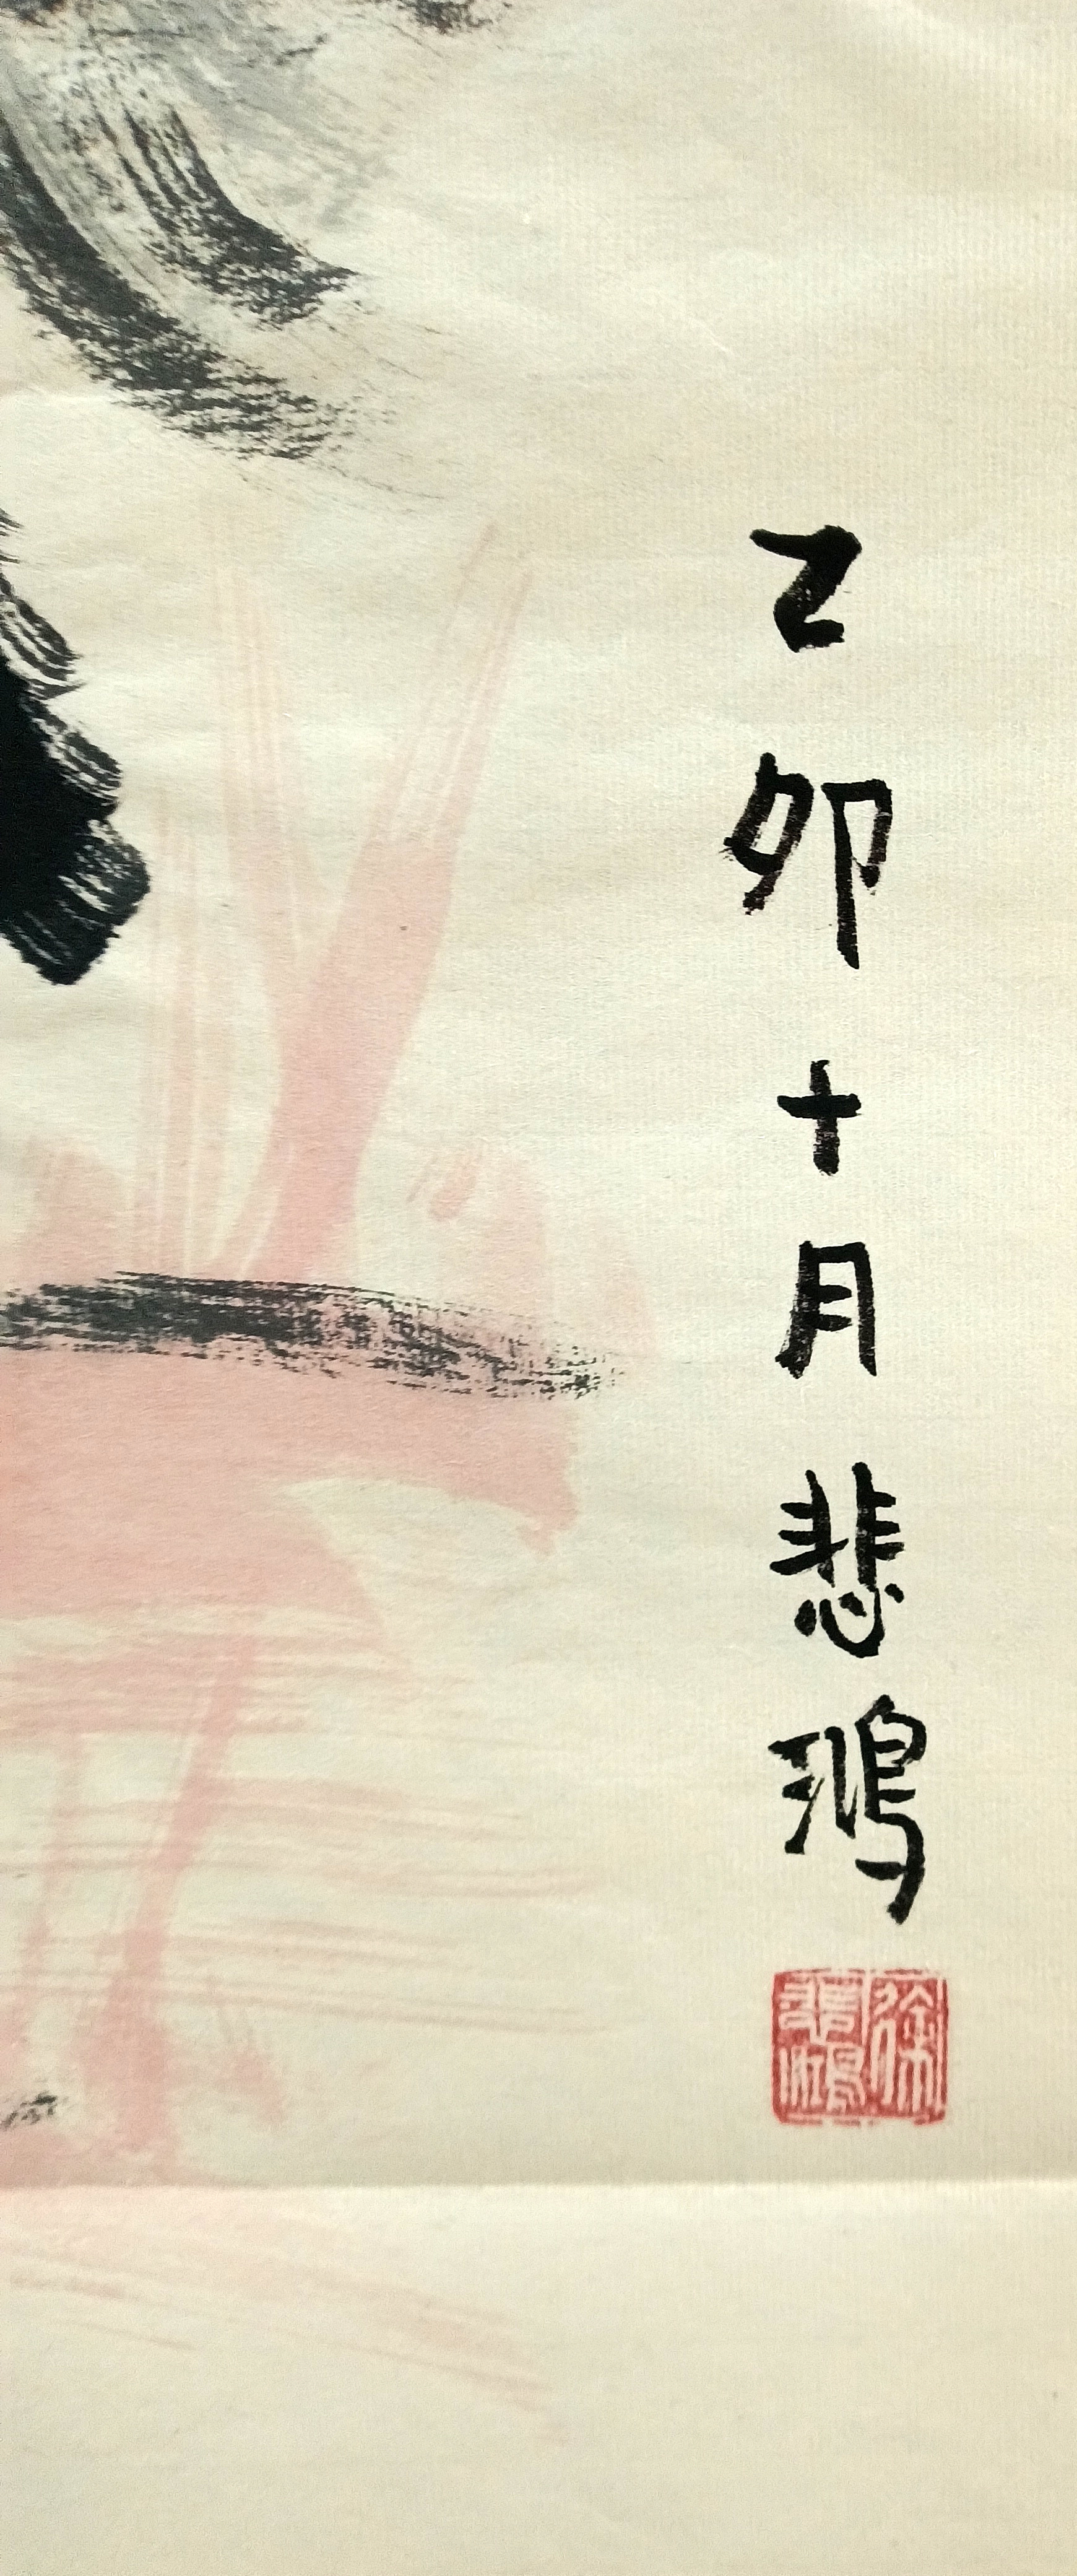 乙卯十月悲鴻
徐悲鴻